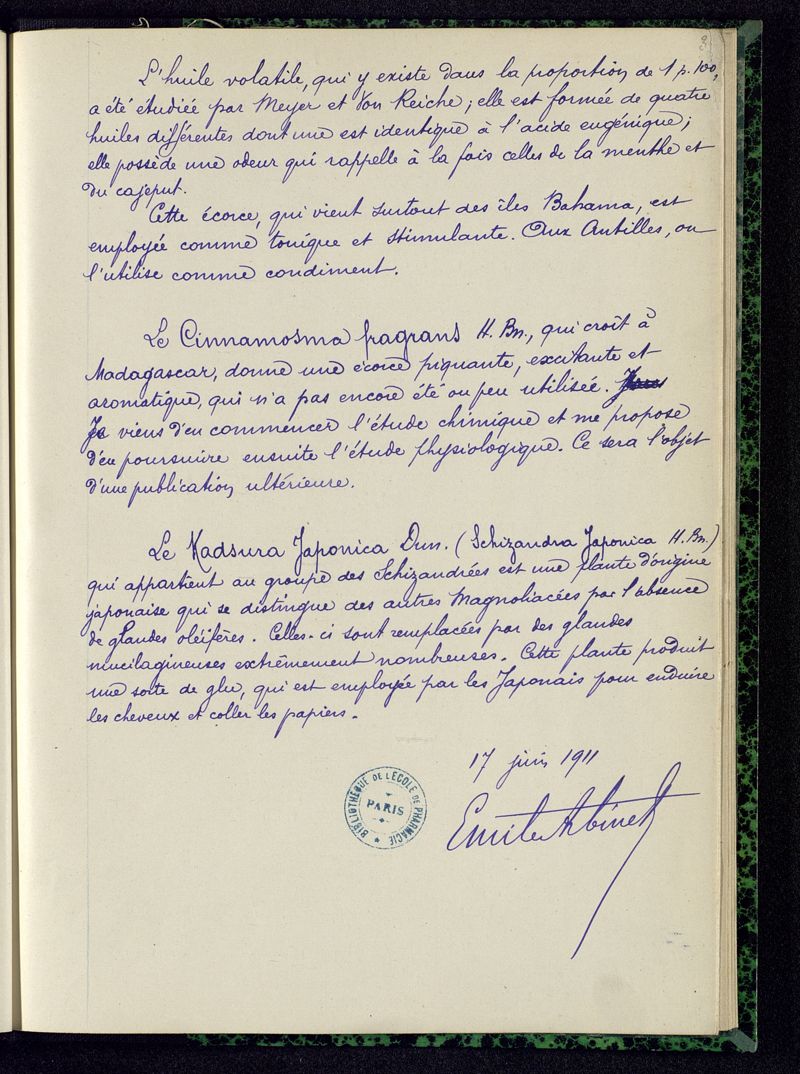 L'huile volatile, qui y existe dans la proportion de 1 p. 100,
a été étudiée par Meyer et Von Reiche ; elle est formée de quatre
huiles différentes dont une est identique à l'acide eugénique ;
elle possède une odeur qui rappelle à la fois celles de la menthe et
du cajeput.
Cette écorce, qui vient surtout des îles Bahama, est
employée comme tonique et stimulante. Aux Antilles, on
l'utilise comme condiment.
Le Cinnamosma fragrans H. Bn., qui croît à
Madagascar, donne une écorce piquante, excitante et
aromatique, qui n'a pas encore été ou peu utilisée.
Je viens d'en commencer l'étude chimique et me propose
d'en poursuivre ensuite l'étude physiologique. Ce sera l'objet
d'une publication ultérieure.
Le Kadsura Japonica Dun. (Schizandra Japonica H. Bn.)
qui appartient au groupe des Schizandrées est une plante d'origine
japonaise qui se distingue des autres Magnoliacées par l'absence
de glandes oléifères. Celles-ci sont remplacées par des glandes
mucilagineuses extrêmement nombreuses. Cette plante produit
une sorte de glu, qui est employée par les Japonais pour enduire
les cheveux et coller les papiers.
17 juin 1911
Emile Abinet
BIBLIOTHÈQUE DE L'ÉCOLE DE PHARMACIE
PARIS